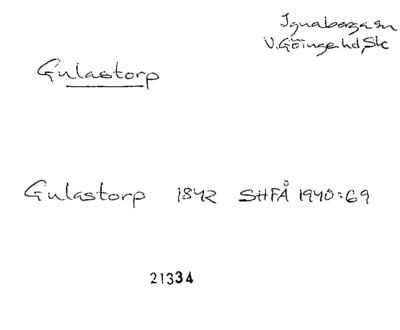 Ignaberga sn
V. Göinge hd, Sk
Gulastorp
Gulastorp 1842 SHFÅ 1940:69
21334